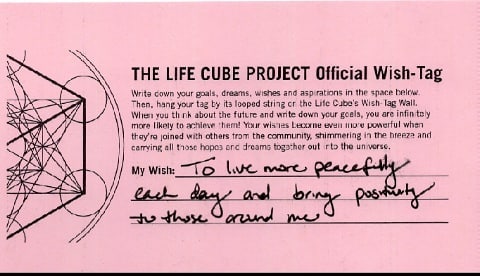 THE LIFE CUBE PROJECT Official Wish-Tag
Write down your goals, dreams, wishes and aspirations in the space below.
Then, hang your tag by its looped string on the Life Cube's Wish-Tag Wall.
When you think about the future and write down your goals, you are infinitely
more likely to achieve them! Your wishes become even more powerful when
they're joined with others from the community, shimmering in the breeze and
carrying all those hopes and dreams together out into the universe.
My Wish: To live more peacefully
each day and bring positivity
to those around me